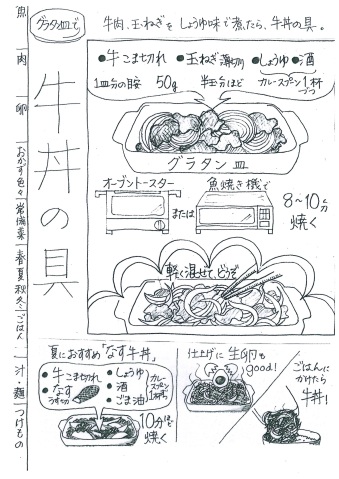 グラタン皿で
牛丼の具
牛肉、玉ねぎをしょうゆ味で煮たら、牛丼の具。
●牛こま切れ ●玉ねぎ薄切り ●しょうゆ ●酒
1皿分の目安 50g 半玉分ほど カレースプーン1杯ずつ
グラタン皿
オーブントースター
または
魚焼き機で
8〜10分
焼く
軽く混ぜて、どうぞ
夏におすすめ「なす牛丼」
●牛こま切れ
●なす
うす切り
●しょうゆ
●酒
●ごま油
カレースプーン1杯ずつ
10分ほど
焼く
仕上げに生卵も
good!
ごはんに
かけたら
牛丼!
魚
肉
卵
おかず色々
常備菜
春夏秋冬
ごはん
汁・麺
つけもの